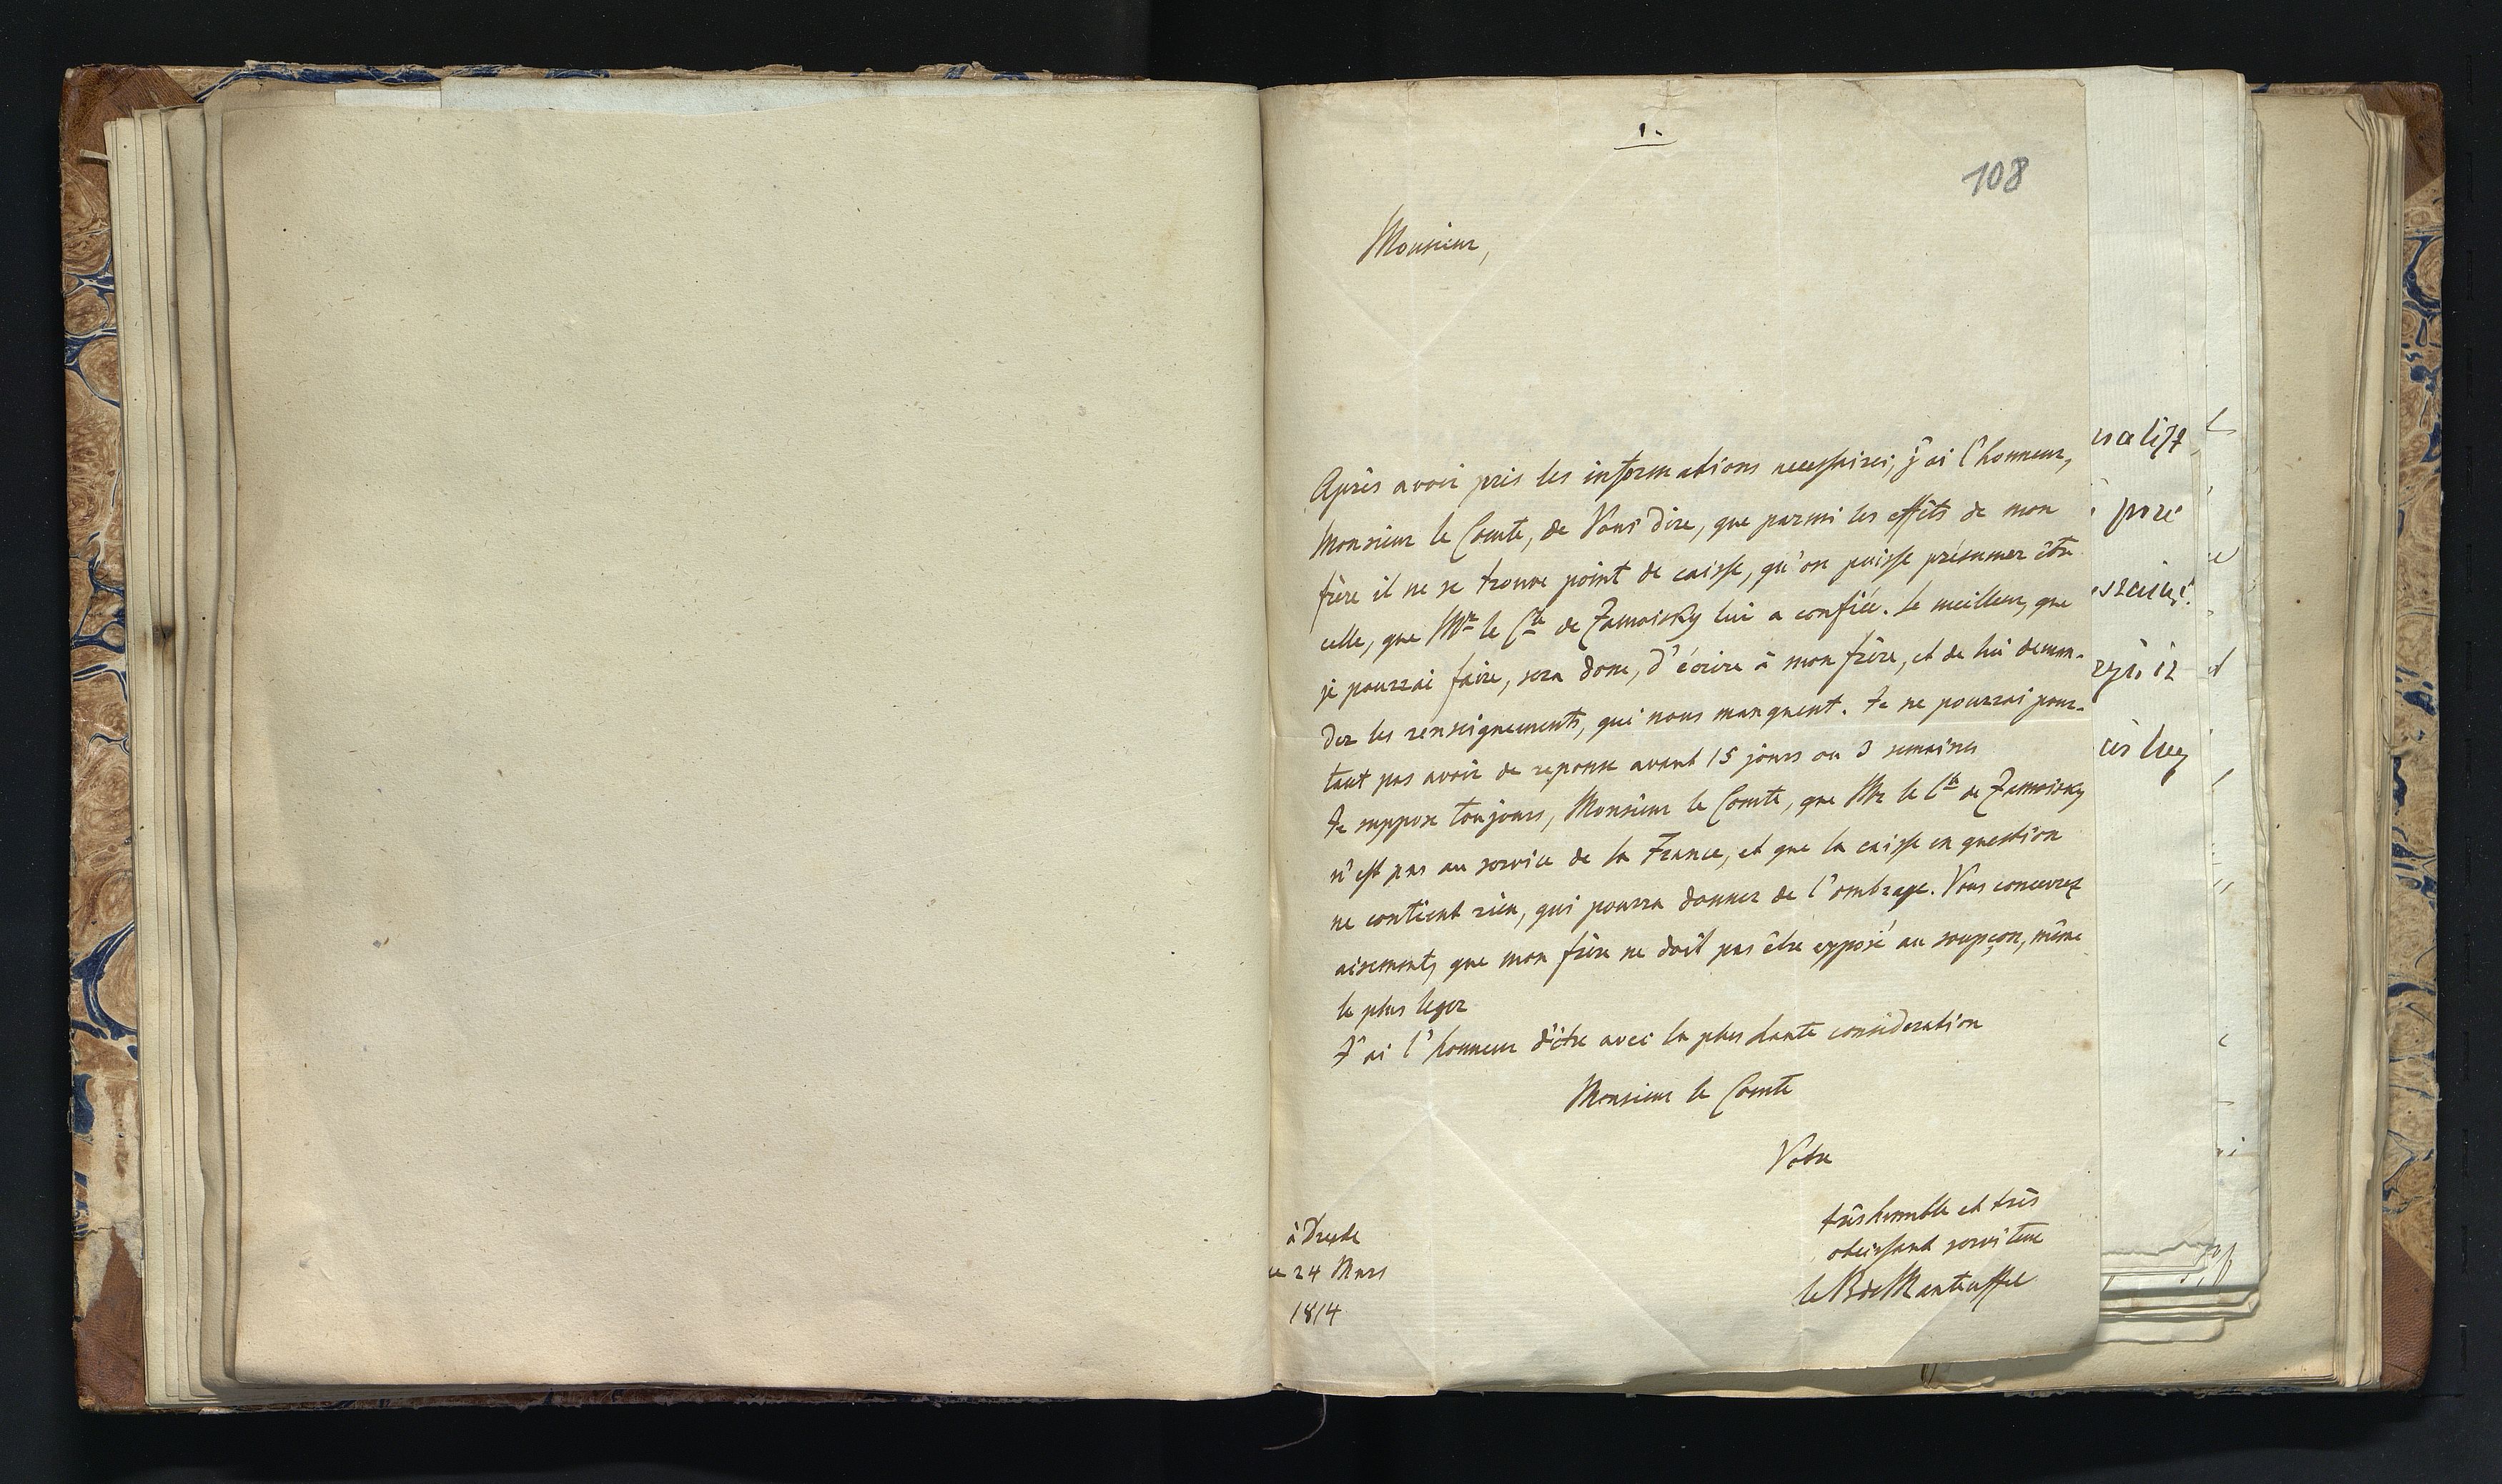 1.
108
Monsieur,
Après avoir pris les informations necessaires, j'ai l'honneur,
Monsieur le Comte, de Vous dire, que parmi les effèts de mon
frère il ne se trouve point de caisse, qu'on puisse présumer être
celle, que Mr le Cte de Zamoisky lui a confiée. Le meilleur, que
je pourrai faire, sera donc, d'écrire à mon frère, et de lui deman-
der les renseignements, qui nous manquent. Je ne pourrai pour-
tant pas avoir de reponse avant 15 jours ou 3 semaines
Je suppose toujours, Monsieur le Comte, que Mr le Cte de Zamoisky
n'est pas au service de la France, et que la caisse en question
ne contient rien, qui pourra donner de l'ombrage. Vous concevrez
aisement, que mon frère ne doit pas être exposé au soupçon, même
le plus leger
J'ai l'honneur d'être avec la plus haute consideration
Monsieur le Comte
Votre
très humble et très
obeissant serviteur
le B de Manteuffel
à Dresde
ce 24 Mars
1814